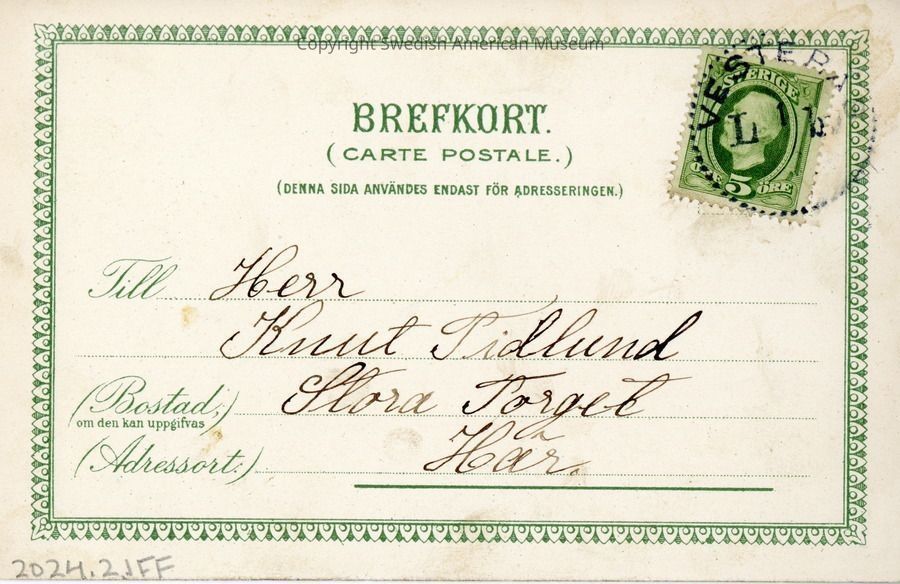 Copyright Swedish American Museum
BREFKORT.
(CARTE POSTALE.)
(DENNA SIDA ANVÄNDES ENDAST FÖR ADRESSERINGEN.)
SVERIGE
5
ÖRE ÖRE
Till Herr
Knut Tidlund
(Bostad,) Stora Torget
om den kan uppgifvas
(Adressort.) Här.
2024.2.1FF